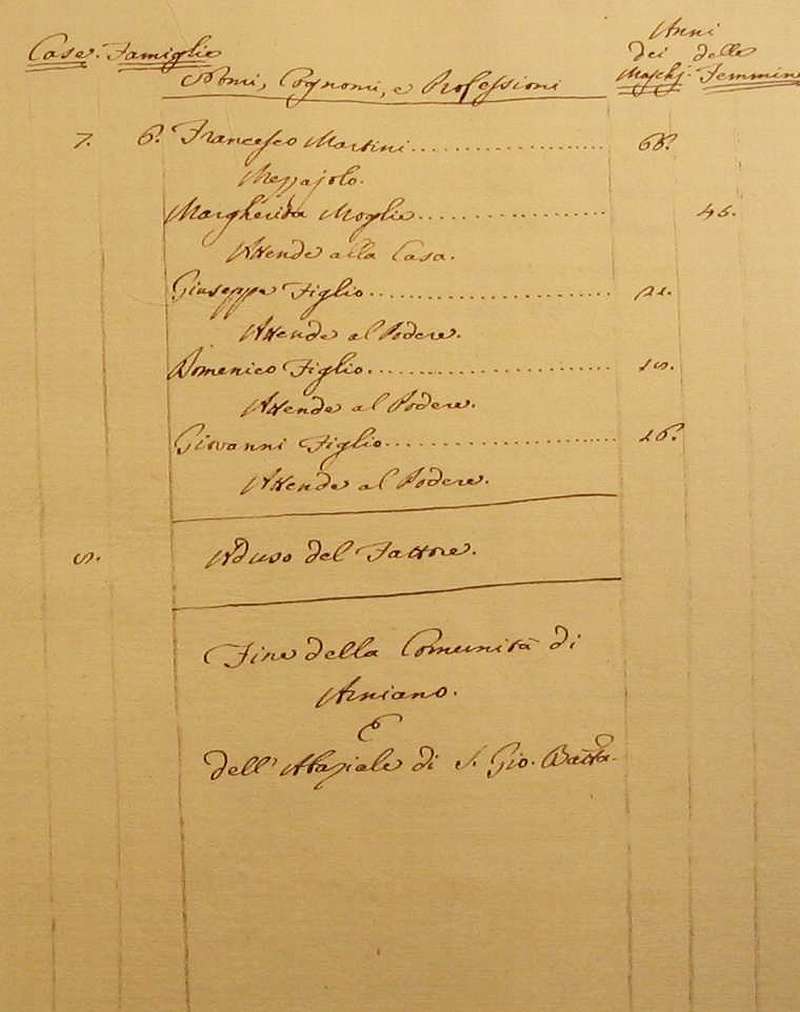 Case. Famiglie
Nomi, Cognomi, e Professioni
Anni
dei delle
Maschj. Femmine
7. 6. Francesco Martini 68.
Mezzajolo.
Margherida Moglie 45.
Attende alla Casa.
Giuseppe Figlio 21.
Attende al Podere.
Domenico Figlio
Attende al Podere.
Giovanni Figlio 16.
Attende al Podere.
Ad uso del Fattore.
Fine della Comunità di
Arniano.
E
dell' Abaziale di S. Gio. Batta.